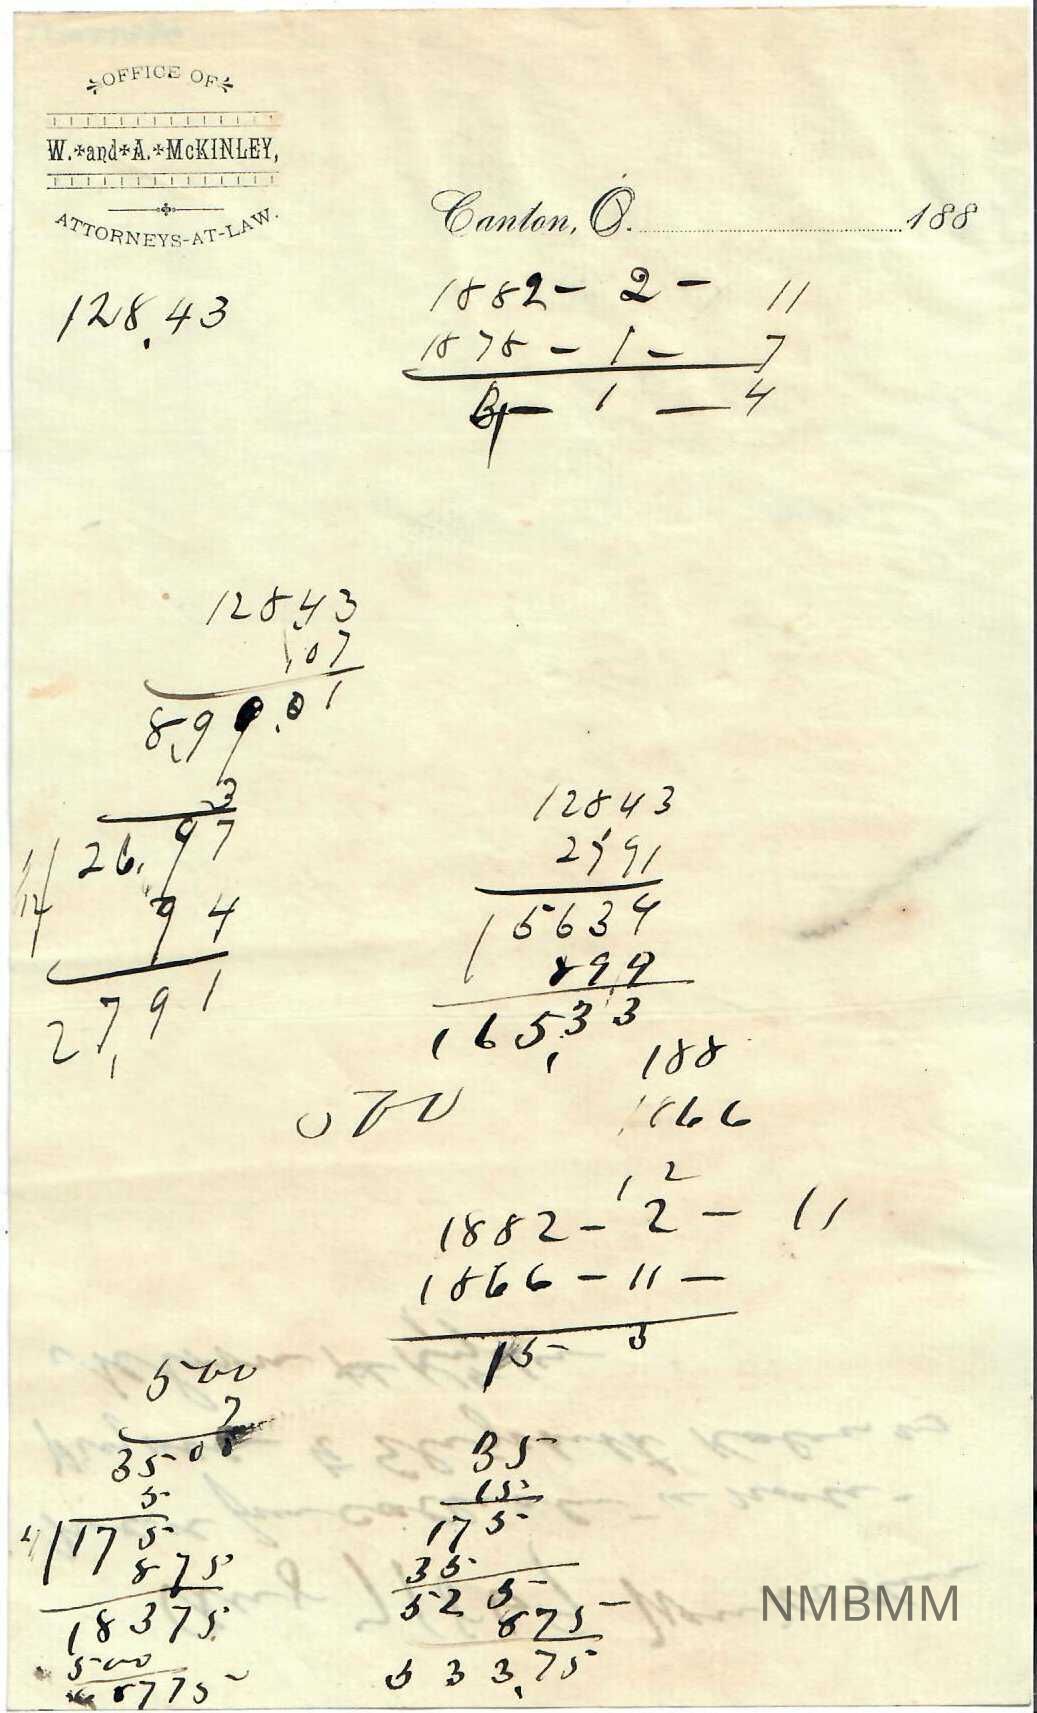 OFFICE OF
W. and A. McKINLEY,
ATTORNEYS-AT-LAW.
Canton, O. 188
128.43
1882 - 2 - 11
1878 - 1 - 7
4 - 1 - 4
128,43
.07
8,99.01
3
26.97
94
27,91
12843
2791
15634
899
165,33
188
1866
1 2
1882 - 2 - 11
1866 - 11 -
15 - 3
500
7
3500
5
175
875
18375
500
35
15
175
35
525
875
533,75
NMBMM